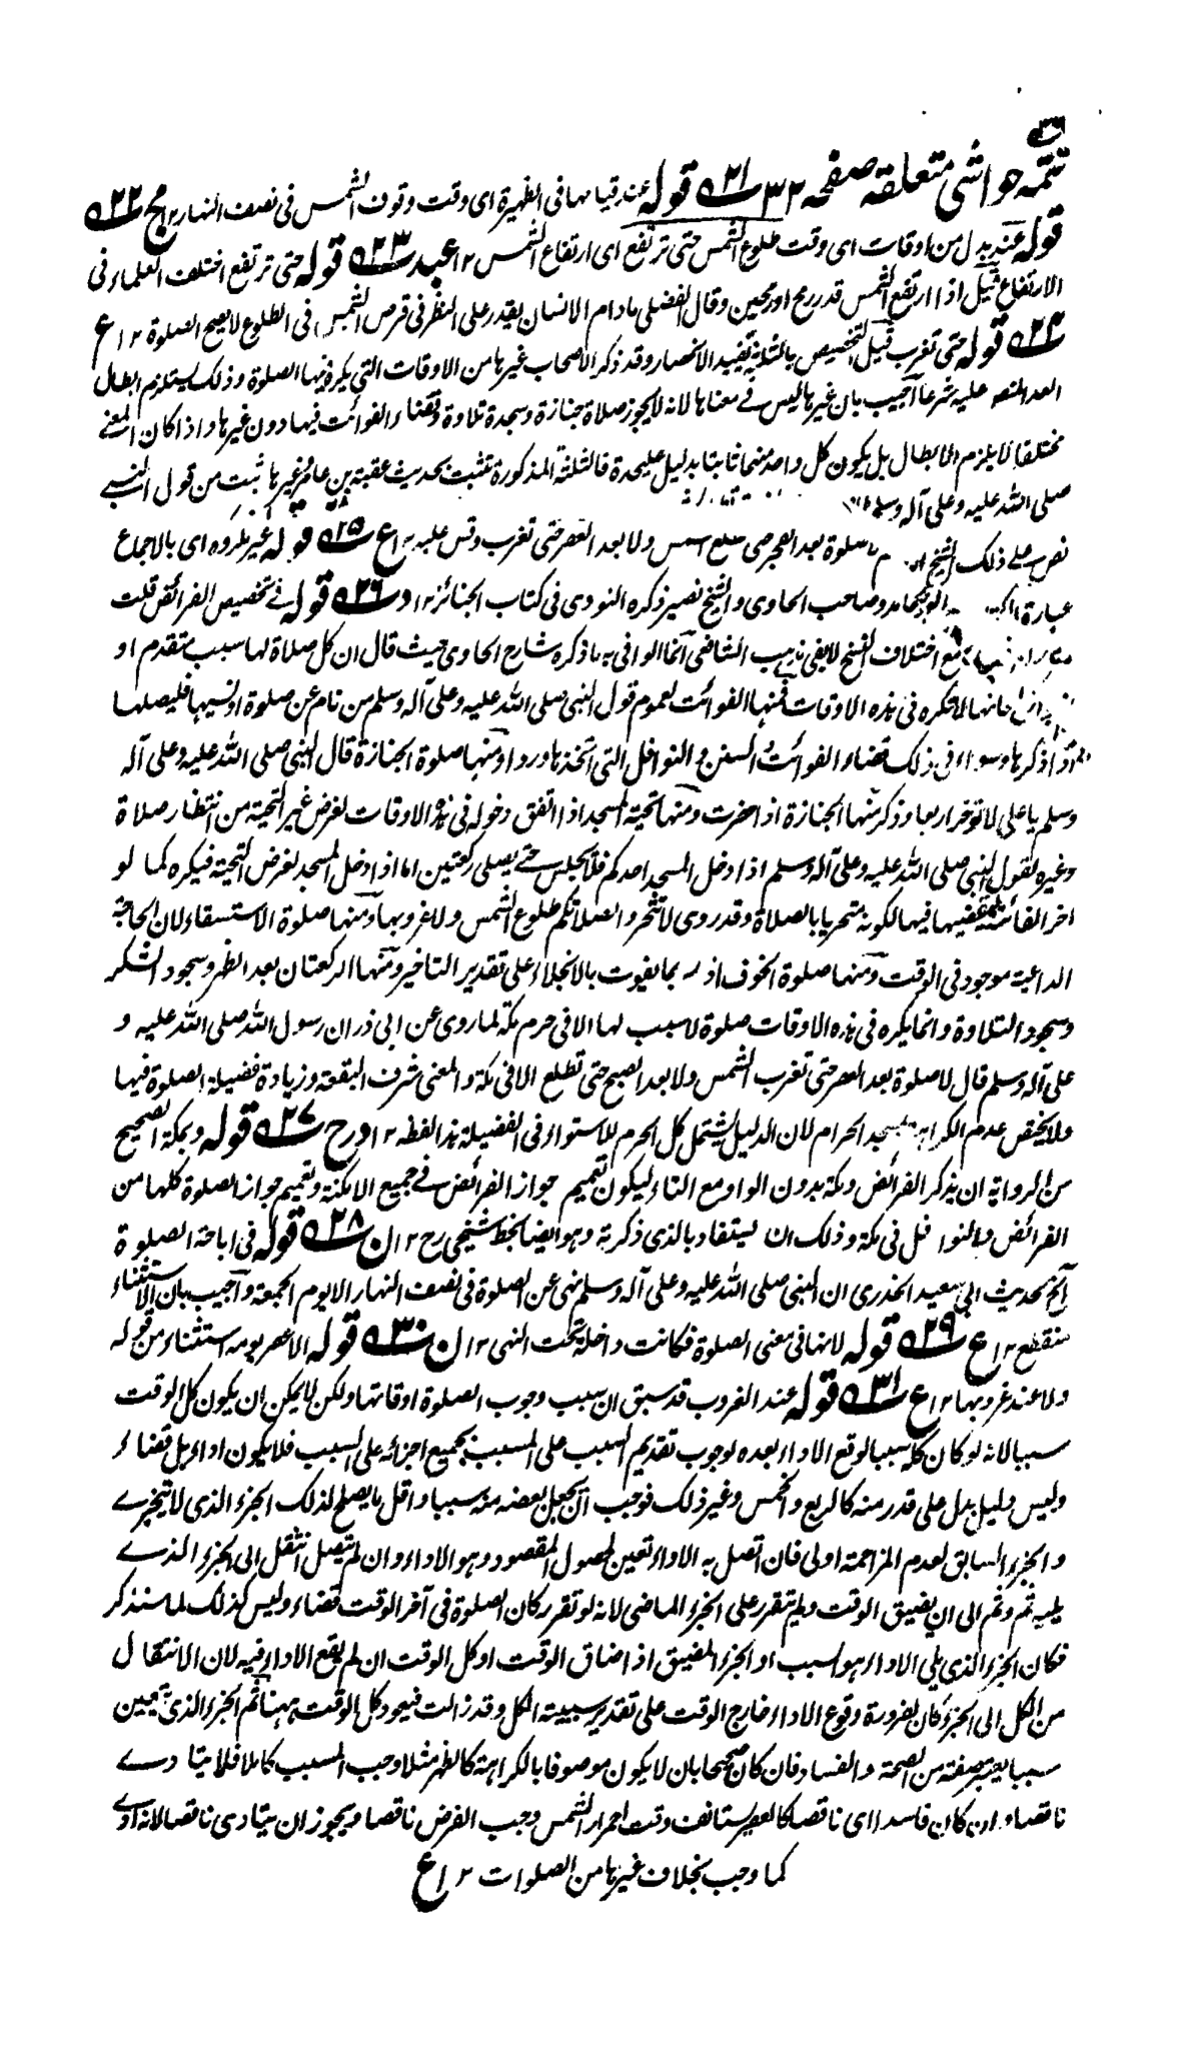 ٣٦
تتمه حواشی متعلقه صفحه ٣٢ ٢١ قوله عند قیامها فی الظهیرة ای وقت وقوف الشمس فی نصف النهار ١٢ مج ٢٢
قوله عند بدل من اوقات ای وقت طلوع الشمس حتی ترتفع ای ارتفاع الشمس ١٢ عبد ٢٣ قوله حتی ترتفع اختلف العلماء فی
الارتفاع قیل اذا ارتفع الشمس قدر رمح او رمحین وقال الفضلی مادام الانسان یقدر علی النظر فی قرص الشمس فی الطلوع لا یصح الصلوة ١٢ ع
٢٤ قوله حتی تغرب قیل التخصیص بالثلثة یفید الانحصار وقد ذکر الاصحاب غیرها من الاوقات التی یکره فیها الصلوة وذلک یستلزم ابطال
العدد المنصوص علیه شرعا اجیب بان غیرها لیس فے معناها لانه لا یجوز صلاة جنازة وسجدة تلاوة وقضاء الفوائت فیها دون غیرها واذا کان المعنے
مختلفا لا یلزم الابطال بل یکون کل واحد منهما ثابتا بدلیل علیحدة فالثلثة المذکورة تثبت بحدیث عقبة بن عامر وغیرها ثبت من قول النبے
صلی الله علیه وعلی آله وسلم
لا صلوة بعد الفجر حتی تطلع الشمس ولا بعد العصر حتی تغرب وقس علیه ١٢ ع ٢٥ قوله غیر مکروه ای بالاجماع نص علے ذلک الشیخ
عبارة ابو حامد وصاحب الحاوی والشیخ نصیر ذکره النووی فی کتاب الجنائز ١٢ د ٢٦ قوله فے تخصیص الفرائض قلت
مع اختلاف النسخ لا یفی بمذهب الشافعی انما الوافی به ما ذکره شارح الحاوی حیث قال ان کل صلاة لها سبب متقدم او
فانها لا تکره فی هذه الاوقات فمنها الفوائت لعموم قول النبی صلی الله علیه وعلی آله وسلم من نام عن صلوة او نسیها فلیصلها
اذا ذکرها وسواء فی ذلک قضاء الفوائت والسنن والنوافل التی اتخذها وردا ومنها صلوة الجنازة قال النبی صلی الله علیه وعلی آله
وسلم یا علی لا توخر اربعا وذکر منها الجنازة اذا حضرت ومنها تحیة المسجد اذا اتفق دخوله فی هذه الاوقات لغرض غیر التحیة من انتظار صلاة
وغیره لقول النبی صلی الله علیه وعلی آله وسلم اذا دخل المسجد احدکم فلا یجلس حتے یصلی رکعتین اما اذا دخل المسجد لغرض التحیة فیکره کما لو
اخر الفائتة لیقضیها فیها لکونه متحریا بالصلاة وقد روی لا تتحروا بصلاتکم طلوع الشمس ولا غروبها ومنها صلوة الاستسقاء لان الحاجة
الداعیة موجود فی الوقت ومنها صلوة الخوف اذ ربما یفوت بالانجلاء علی تقدیر التاخیر ومنها الرکعتان بعد الظهر وسجود الشکر
وسجود التلاوة وانما یکره فی هذه الاوقات صلوة لا سبب لها الا فی حرم مکة لما روی عن ابی ذر ان رسول الله صلی الله علیه و
علی آله وسلم قال لا صلوة بعد العصر حتی تغرب الشمس ولا بعد الصبح حتی تطلع الا فی مکة والمعنی شرف البقعة وزیادة فضیلة الصلوة فیها
ولا یختص عدم الکراهة بمسجد الحرام لان الدلیل یشتمل کل الحرم للاستواء فی الفضیلة هذا لفظه ١٢ درح ٢٧ قوله وبمکة الصحیح
من الروایة ان یذکر الفرائض ومکة بدون الواو مع التاء لیکون تعمیم جواز الفرائض فے جمیع الامکنة وتعمیم جواز الصلوة کلها من
الفرائض والنوافل فی مکة وذلک ان یستفاد بالذی ذکر به وهو ایضا بخط شیخی رح ١٢ ن ٢٨ قوله فی اباحة الصلوة
الخ بحدیث ابی سعید الخدری ان النبی صلی الله علیه وعلی آله وسلم نهی عن الصلوة فی نصف النهار الا یوم الجمعة واجیب بان الاستثناء
منقطع ١٢ ع ٢٩ قوله لانها فی معنی الصلوة فکانت داخلة تحت النهی ١٢ ل ن ٣٠ قوله الا عصر یومه استثناء من قوله
ولا عند غروبها ١٢ ع ٣١ قوله عند الغروب قد سبق ان سبب وجوب الصلوة اوقاتها ولکن لا یمکن ان یکون کل الوقت
سببا لانه لو کان کله سببا لوقع الاداء بعده لوجوب تقدیم السبب علی المسبب بجمیع اجزائه علی السبب فلا یکون اداء بل قضاء
ولیس دلیل یدل علی قدر منه کالربع والخمس وغیر ذلک فوجب ان یجعل بعضه منه سببا واقل ما یصلح لذلک الجزء الذی لا یتجزے
والجزء السابق لعدم المزاحمة اولی فان اتصل به الاداء تعین لحصول المقصود وهو الاداء وان لم یتصل انتقل الی الجزء الذے
یلیه ثم وثم الی ان یضیق الوقت ولم یتقرر علی الجزء الماضی لانه لو تقرر کان الصلوة فی آخر الوقت قضاء ولیس کذلک لما سنذکر
فکان الجزء الذی یلی الاداء هو السبب او الجزء المضیق اذا ضاق الوقت او کل الوقت ان لم یقع الاداء فیه لان الانتقال
من الکل الی الجزء کان لضرورة وقوع الاداء خارج الوقت علی تقدیر سببیة الکل وقد زالت فیعود کل الوقت ههنا ثم الجزء الذی یتعین
سببا یعتبر صفته من الصحة والفساد فان کان صحیحا بان لا یکون موصوفا بالکراهة کالظهر مثلا وجب المسبب کاملا فلا یتادے
ناقصاء وان کان فاسدا ای ناقصا کالعصر یستانف وقت احمرار الشمس وجب الفرض ناقصا ویجوز ان یتادی ناقصا لانه ادے
کما وجب بخلاف غیرها من الصلوات ١٢ ع